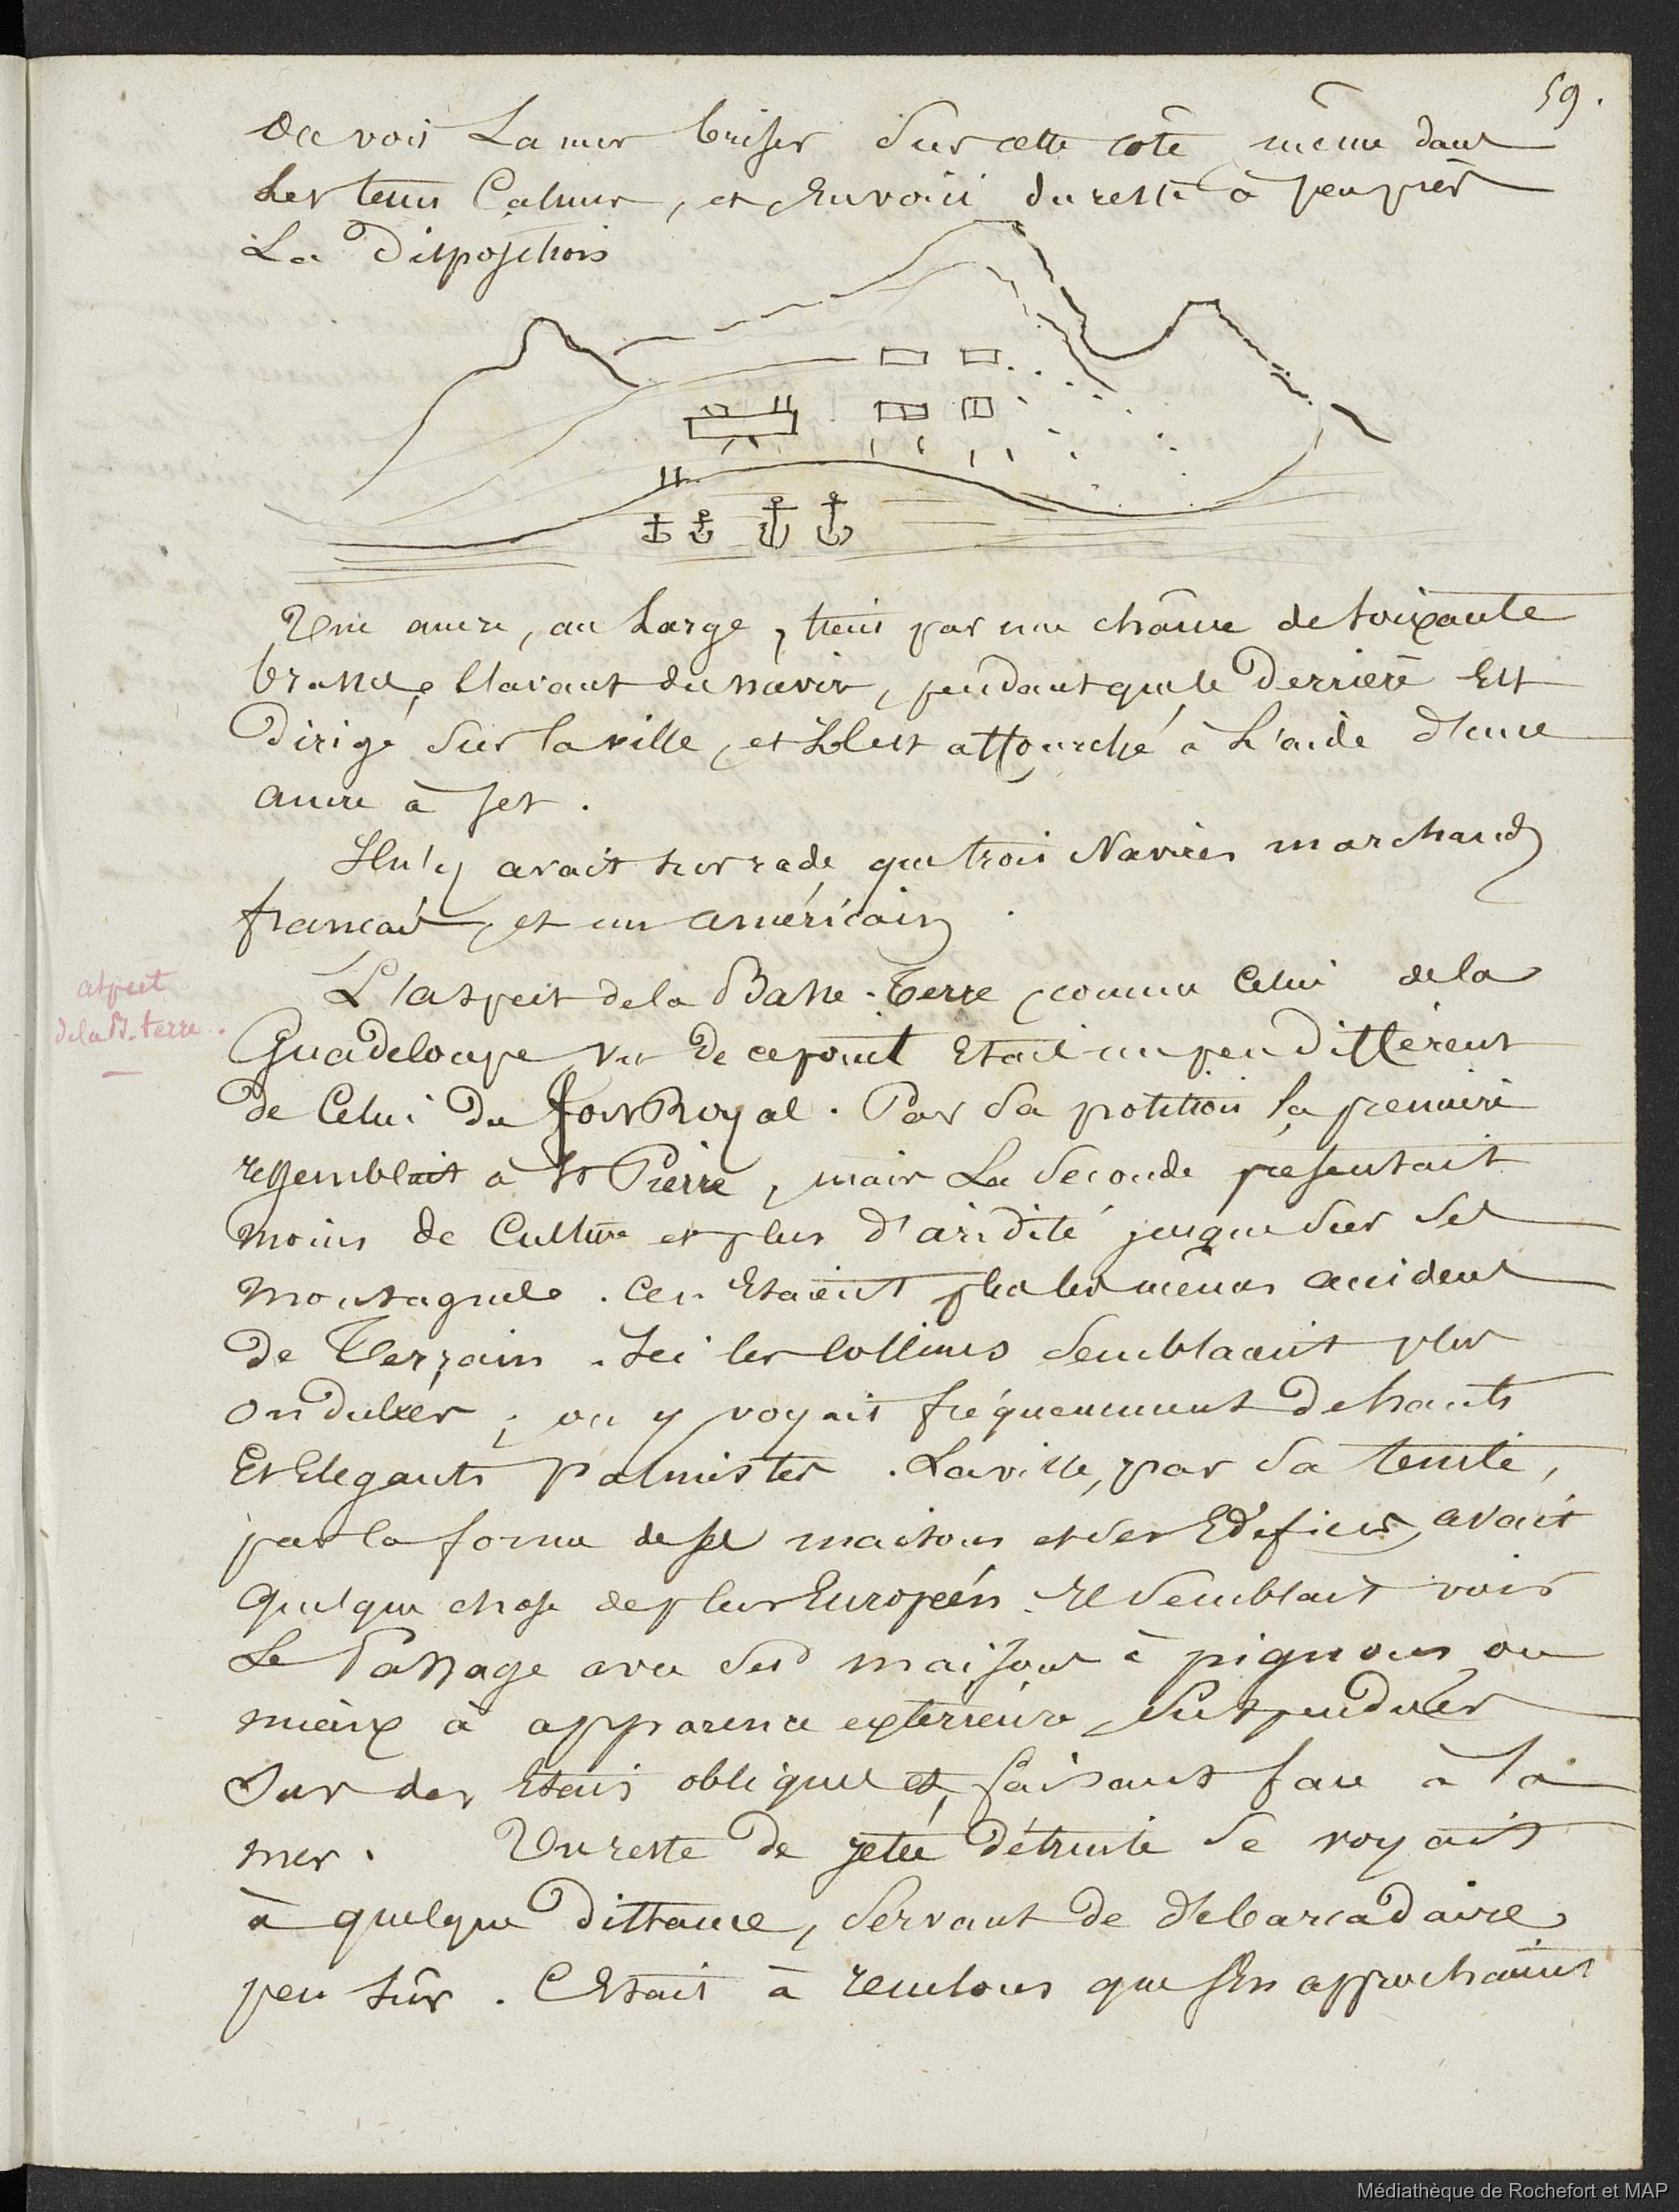 59.
De voir La mer briser Sur cette côte même dans
Les tems Calmes, et En voici du reste à peu près
La Disposition
Une ancre, au Large, tient par une chaîne de soixante
brasses, l'avant du navire, pendant que le Derrière Est
Dirigé Sur la ville, et Il est affourché à L'aide d'une
ancre à jet.
Il n'y avait sur rade que trois Navires marchands
français, et un américain.
aspect
de la B. terre.
L'aspect de la Basse-Terre, comme Celui de la
Guadeloupe vu De ce point Etait un peu Différent
De Celui Du Fort Royal. Par Sa position la première
ressemblait à St Pierre, mais La Seconde présentait
moins de Culture et plus d'aridité jusque Sur Ses
montagnes. Ce n'Etaient plus les mêmes accidens
De Terrain. Ici les Collines Semblaient plus
onDulées; on y voyait fréquemment De hauts
Et Elégants Palmistes. La ville, par Sa teinte,
par la forme de ses maisons et Ses Edifices, avait
quelque chose de plus Européen. Il Semblait voir
Le Passage avec Ses maisons à pignons ou
mieux à apparence extérieure, Suspendues
Sur des Etais obliques et faisant face à la
mer. Un reste De jetée Détruite Se voyait
à quelque Distance, Servant De Débarcadaire
peu sûr. C'Etait à